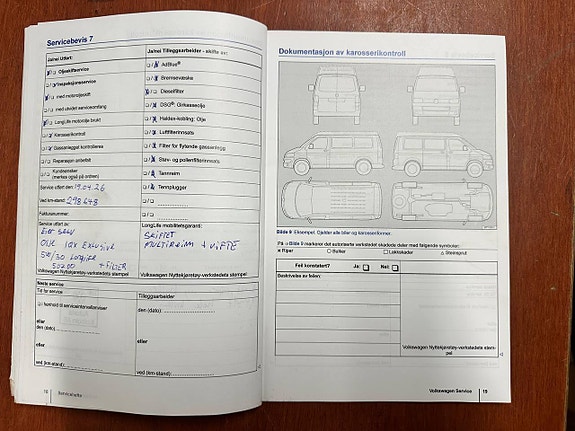 Servicebevis 7
Ja/nei Utført:
Ja/nei Tilleggsarbeider - skifte av:
Oljeskiftservice
AdBlue®
Inspeksjonsservice
Bremsevæske
med motoroljeskift
Dieselfilter
med utvidet serviceomfang
DSG®: Girkasseolje
LongLife motorolje brukt
Haldex-kobling: Olje
Karosserikontroll
Luftfilterinnsats
Gassanlegget kontrolleres
Filter for flytende gassanlegg
Reparasjon anbefalt
Støv- og pollenfilterinnsats
Kundeønsker
(merkes også på ordren)
Tannreim
Service utført den 19.04.26
Tennplugger
Ved km-stand: 298648
Fakturanummer:
Service utført av:
EIER SELV
OLJE 1QX EXLUSIVE
5W/30 Longlife
507.00 + FILTER
Volkswagen Nyttekjøretøy-verkstedets stempel
LongLife mobilitetsgaranti:
SKIFTET
MULTIREIM + VIFTE
Volkswagen Nyttekjøretøy-verkstedets stempel
Neste service
Tid for service
Tilleggsarbeider
i henhold til serviceintervallviser
den (dato)
eller
den (dato)
eller
eller
ved (km-stand)
ved (km-stand)
Servicehefte
Dokumentasjon av karosserikontroll
Bilde 8 Eksempel. Gjelder alle biler og karosserformer.
På Bilde 8 markerer det autoriserte verkstedet skadede deler med følgende symboler:
× Riper
○ Bulker
□ Lakkskader
△ Steinsprut
Feil konstatert?
Ja:
Nei:
Beskrivelse av feilen:
Volkswagen Nyttekjøretøy-verkstedets stem-
pel
Volkswagen Service
19